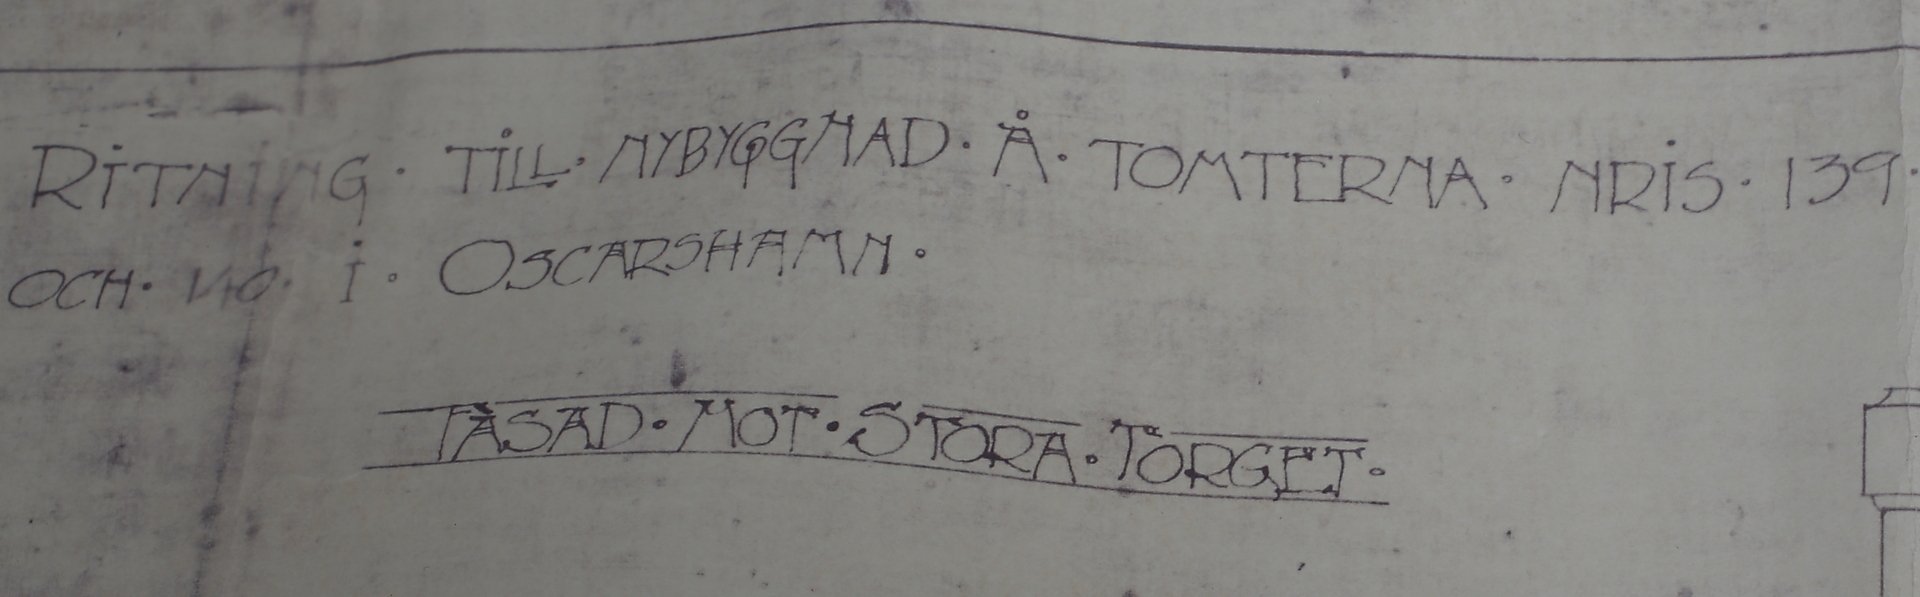 RITNING · TILL · NYBYGGNAD · Å · TOMTERNA · NRIS · 139 ·
OCH · 140 · I · OSCARSHAMN ·
FASAD · MOT · STORA · TORGET ·